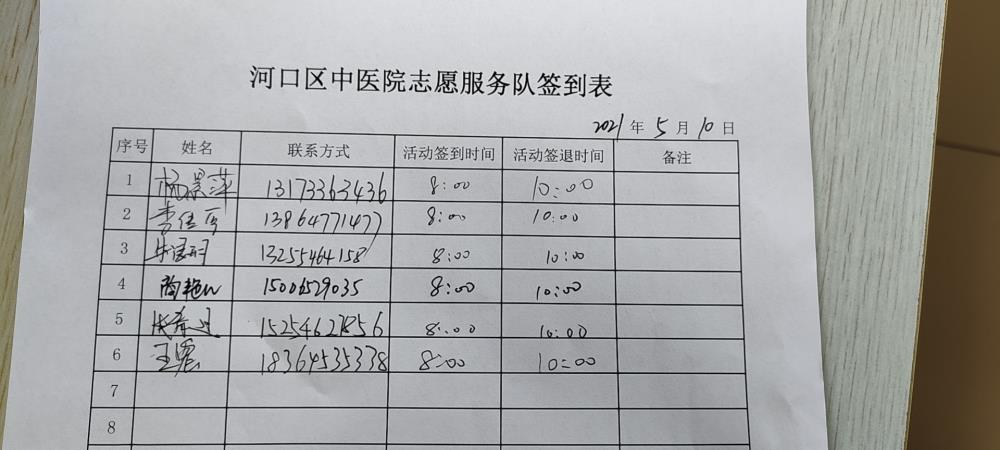 河口区中医院志愿服务队签到表
2021年5月10日
序号 姓名 联系方式 活动签到时间 活动签退时间 备注
1 杨景萍 13173363436 8:00 10:00
2 13864771477 8:00 10:00
3 13255464158 8:00 10:00
4 15006529035 8:00 10:00
5 15254627856 8:00 10:00
6 18364535338 8:00 10:00
7
8